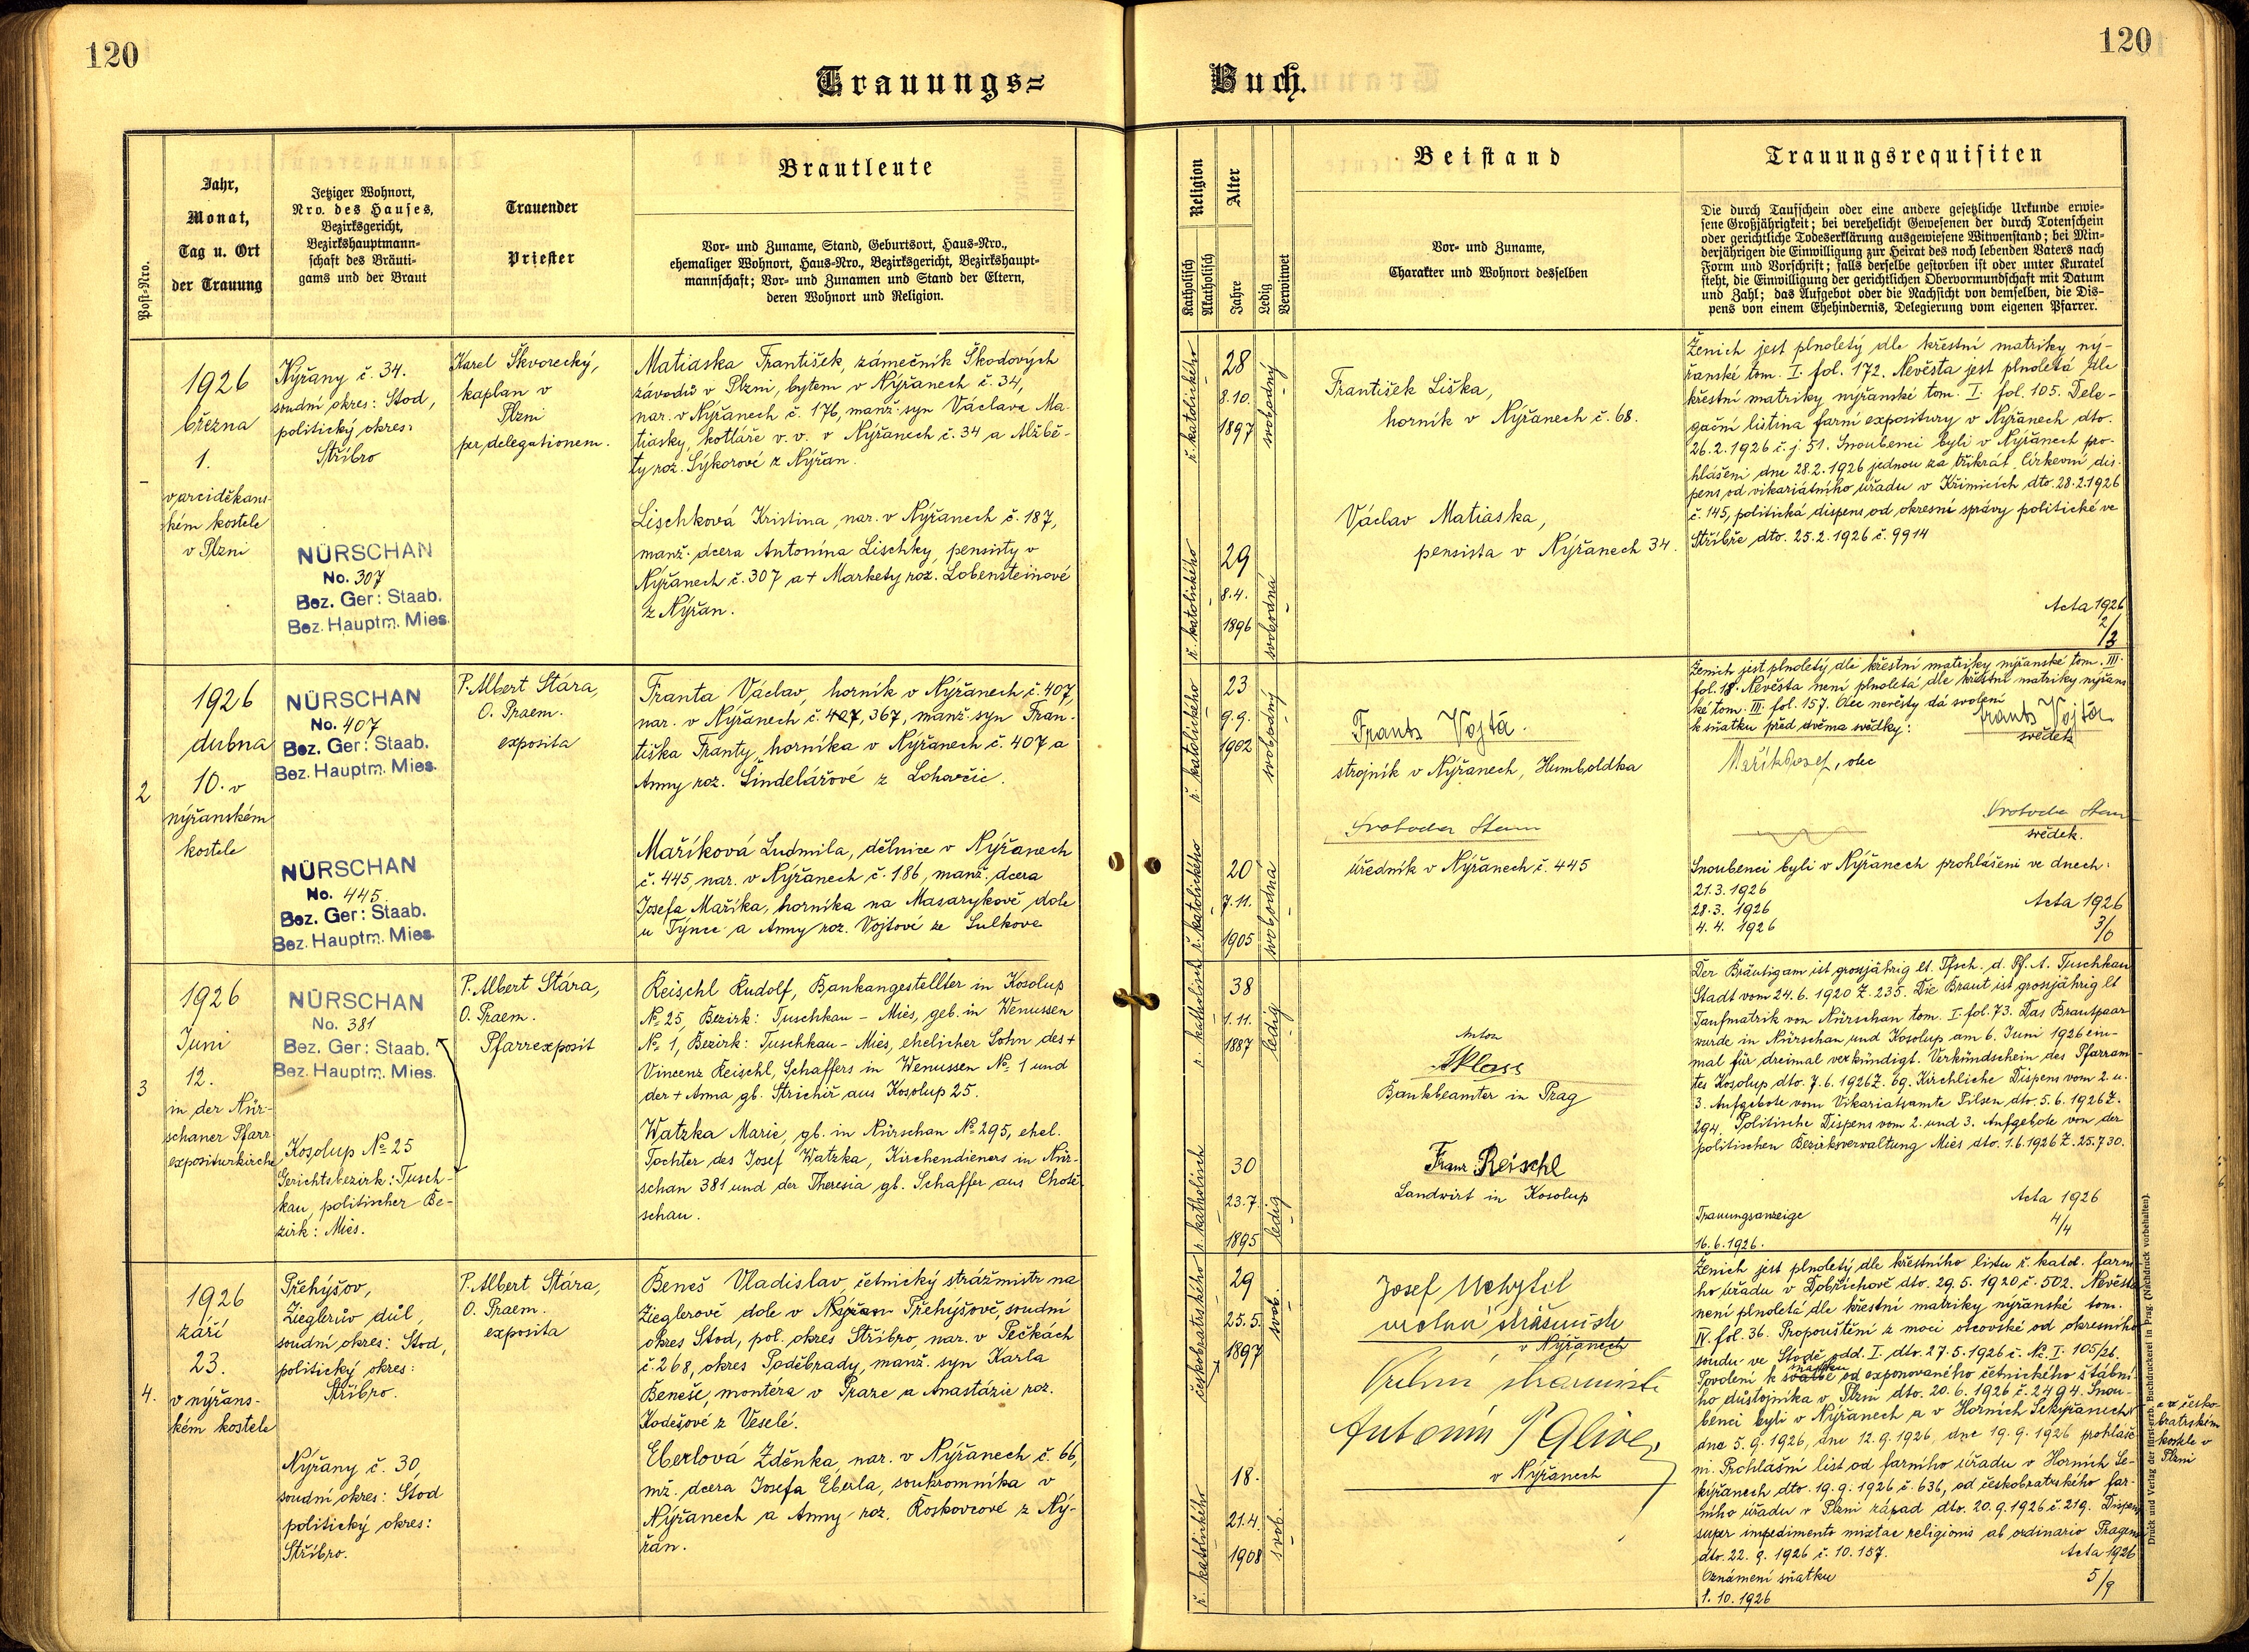 120
120
Trauungs=
Buch.
Post-Nro.
Jahr,
Monat,
Tag u. Ort
der Trauung
Jetziger Wohnort,
Nro. des Hauses,
Bezirksgericht,
Bezirkshauptmann=
schaft des Bräuti=
gams und der Braut
Trauender
Priester
Brautleute
Vor- und Zuname, Stand, Geburtsort, Haus-Nro.,
ehemaliger Wohnort, Haus-Nro., Bezirksgericht, Bezirkshaupt=
mannschaft; Vor- und Zunamen und Stand der Eltern,
deren Wohnort und Religion.
Religion
Katholisch
Akatholisch
Alter
Jahre
Ledig
Verwitwet
Beistand
Vor- und Zuname,
Charakter und Wohnort desselben
Trauungsrequisiten
Die durch Taufschein oder eine andere gesetzliche Urkunde erwie=
sene Großjährigkeit; bei verehelicht Gewesenen der durch Totenschein
oder gerichtliche Todeserklärung ausgewiesene Witwenstand; bei Min=
derjährigen die Einwilligung zur Heirat des noch lebenden Vaters nach
Form und Vorschrift; falls derselbe gestorben ist oder unter Kuratel
steht, die Einwilligung der gerichtlichen Obervormundschaft mit Datum
und Zahl; das Aufgebot oder die Nachsicht von demselben, die Dis=
pens von einem Ehehindernis, Delegierung vom eigenen Pfarrer.
1926
března
1.
v arciděkans-
kém kostele
v Plzni
Nýřany č. 34.
soudní okres: Stod,
politický okres:
Stříbro
NÜRSCHAN
No. 307
Bez. Ger: Staab.
Bez. Hauptm. Mies.
Karel Škvorecký,
kaplan v
Plzni
per delegationem.
Matiaska František, zámečník Škodových
závodů v Plzni, bytem v Nýřanech č. 34,
nar. v Nýřanech č. 176, manž. syn Václava Ma-
tiasky, kotláře v. v. v Nýřanech č. 34 a Alžbě-
ty roz. Sýkorové z Nýřan.
Lischková Kristina, nar. v Nýřanech č. 187,
manž. dcera Antonína Lischky, pensisty v
Nýřanech č. 307 a + Markety roz. Lobensteinové
z Nýřan.
ř. katolického
28
8.10.
1897
svobodný
ř. katolického
29
8.4.
1896
svobodná
František Liška,
horník v Nýřanech č. 68.
Václav Matiaska,
pensista v Nýřanech 34.
Ženich jest plnoletý dle křestní matriky ný-
řanské tom. I. fol. 172. Nevěsta jest plnoletá dle
křestní matriky nýřanské tom. I. fol. 105. Dele-
gační listina farní expositury v Nýřanech dto.
26.2.1926 č. j. 51. Snoubenci byli v Nýřanech pro-
hlášeni dne 28.2.1926 jednou za třikrát. Církevní dis-
pens od vikariátního úřadu v Křimicích dto. 28.2.1926
č. 145, politická dispens od okresní správy politické ve
Stříbře dto. 25.2.1926 č. 9914
Acta 1926
2/3
2
1926
dubna
10. v
nýřanském
kostele
NÜRSCHAN
No. 407
Bez. Ger: Staab.
Bez. Hauptm. Mies.
NÜRSCHAN
No. 445
Bez. Ger: Staab.
Bez. Hauptm. Mies.
P. Albert Stára,
O. Praem.
exposita
Franta Václav, horník v Nýřanech č. 407,
nar. v Nýřanech č. 407, 367, manž. syn Fran-
tiška Franty, horníka v Nýřanech č. 407 a
Anny roz. Šindelářové z Lohavčic.
Maříková Ludmila, dělnice v Nýřanech
č. 445, nar. v Nýřanech č. 186, manž. dcera
Josefa Maříka, horníka na Masarykově dole
u Týnce a Anny roz. Vojtové ze Sulkova
ř. katolického
23
9.9.
1902
svobodný
ř. katolického
20
7.11.
1905
svobodná
Frants Vojta.
strojník v Nýřanech, Humboldka
Svoboda
úředník v Nýřanech č. 445
Ženich jest plnoletý dle křestní matriky nýřanské tom. III.
fol. 18. Nevěsta není plnoletá dle křestní matriky nýřans
ké tom. III. fol. 157. Otec nevěsty dá svolení
k sňatku před dvěma svědky:
Frants Vojta
svědek
Mařík Josef, otec
Svoboda
svědek.
Snoubenci byli v Nýřanech prohlášeni ve dnech:
21.3.1926
28.3.1926
4.4.1926
Acta 1926
3/6
3
1926
Juni
12.
in der Nür-
schaner Pfarr
expositurkirche
NÜRSCHAN
No. 381
Bez. Ger: Staab.
Bez. Hauptm. Mies.
Kosolup № 25
Gerichtsbezirk: Tusch-
kau, politischer Be-
zirk: Mies.
P. Albert Stára,
O. Praem.
Pfarrexposit
Reischl Rudolf, Bankangestellter in Kosolup
№ 25, Bezirk: Tuschkau - Mies, geb. in Wenussen
№ 1, Bezirk: Tuschkau - Mies, ehelicher Sohn des +
Vincenz Reischl, Schaffers in Wenussen № 1 und
der + Anna gb. Strichiř aus Kosolup 25.
Watzka Marie, gb. in Nürschan № 295, ehel.
Tochter des Josef Watzka, Kirchendieners in Nür-
schan 381 und der Theresia gb. Schaffer aus Chotě
schau.
r. katholisch
38
1.11.
1887
ledig
r. katholisch
30
23.7.
1895
ledig
Anton
Bankbeamter in Prag
Franz Reischl
Landwirt in Kosolup
Der Bräutigam ist grossjährig lt. Tfsch. d. Pf. A. Tuschkau
Stadt vom 24.6.1920 Z. 235. Die Braut ist grossjährig lt
Taufmatrik von Nürschan tom. I. fol. 73. Das Brautpaar
wurde in Nürschan und Kosolup am 6. Juni 1926 ein-
mal für dreimal verkündigt. Verkündschein des Pfarram-
tes Kosolup dto. 7.6.1926 Z. 69. Kirchliche Dispens vom 2. u.
3. Aufgebote vom Vikariatsamte Pilsen dto. 5.6.1926 Z.
294. Politische Dispens vom 2. und 3. Aufgebote von der
politischen Bezirksverwaltung Mies dto. 1.6.1926 Z. 25.730.
Acta 1926
4/4
Trauungsanzeige
16.6.1926.
4.
1926
září
23.
v nýřans-
kém kostele
Přehýšov,
Zieglerův důl,
soudní okres: Stod,
politický okres:
Stříbro.
Nýřany č. 30,
soudní okres: Stod
politický okres:
Stříbro.
P. Albert Stára,
O. Praem.
exposita
Beneš Vladislav, četnický strážmistr na
Zieglerově dole v Nýřan Přehýšově, soudní
okres Stod, pol. okres Stříbro, nar. v Pečkách
č. 268, okres Poděbrady, manž. syn Karla
Beneše, montéra v Praze a Anastázie roz.
Kodešové z Veselé.
Eberlová Zděnka, nar. v Nýřanech č. 66,
mž. dcera Josefa Eberla, soukromníka v
Nýřanech a Anny roz. Roskovcové z Ný-
řan.
českobratrského
29
25.5.
1897
svob.
ř. katolického
18.
21.4.
1908
svob.
Josef
vrchní strážmistr
v Nýřanech
Vrchní strážmistr
Antonín
v Nýřanech
Ženich jest plnoletý dle křestního listu ř. katol. farní-
ho úřadu v Dobřichově dto. 29.5.1920 č. 502. Nevěsta
není plnoletá dle křestní matriky nýřanské tom.
IV. fol. 36. Propouštění z moci otcovské od okresního
soudu ve Stodě odd. I. dto. 27.5.1926 č. Nc. I. 105/26.
Povolení k svatbě sňatku od exponovaného četnického štábní-
ho důstojníka v Plzni dto. 20.6.1926 č. 2494. Snou-
benci byli v Nýřanech a v Horních Sekyřanech
dne 5.9.1926, dne 12.9.1926, dne 19.9.1926 prohláše-
ni. Prohlášní list od farního úřadu v Horních Se-
kyřanech dto. 19.9.1926 č. 636, od českobratrského far-
ního úřadu v Plzni západ dto. 20.9.1926 č. 219. Dispens
super impedimento mixtae religionis ab ordinario Pragens
dto. 22.9.1926 č. 10.157.
Acta 1926
5/9
Oznámení sňatku
1.10.1926
a v česko-
bratrském
kostele v
Plzni
Druck und Verlag der fürst-erzb. Buchdruckerei in Prag. (Nachdruck vorbehalten).